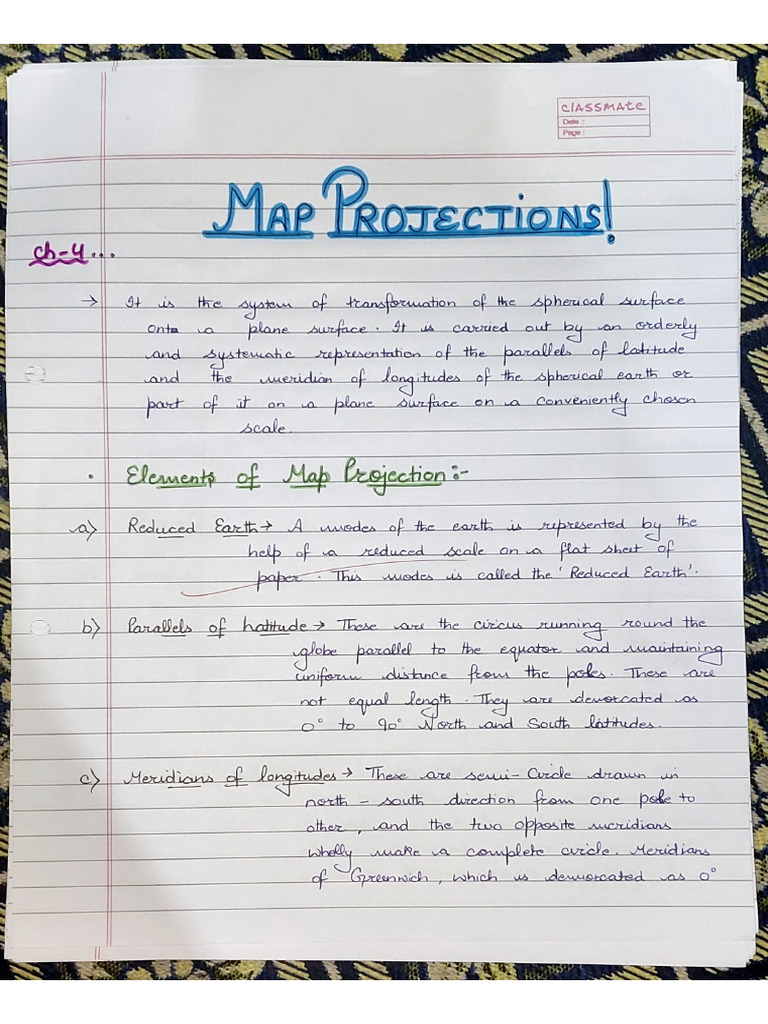 CLASSMATE
Date :
Page :
MAP PROJECTIONS!
Ch-4...
→ It is the system of transformation of the spherical surface
onto a plane surface. It is carried out by an orderly
and systematic representation of the parallels of latitude
and the meridian of longitudes of the spherical earth or
part of it on a plane surface on a conveniently chosen
scale.
• Elements of Map Projection:-
a) Reduced Earth → A modes of the earth is represented by the
help of a reduced scale on a flat sheet of
paper. This modes is called the 'Reduced Earth'.
b) Parallels of Latitude → These are the circus running round the
globe parallel to the equator and maintaining
uniform distance from the poles. These are
not equal length. They are demorcated as
0° to 90° North and South latitudes.
c) Meridians of longitudes → These are semi-Circle drawn in
north - south direction from one pole to
other, and the two opposite meridians
wholly make a complete circle. Meridians
of Greenwich, which is demorcated as 0°